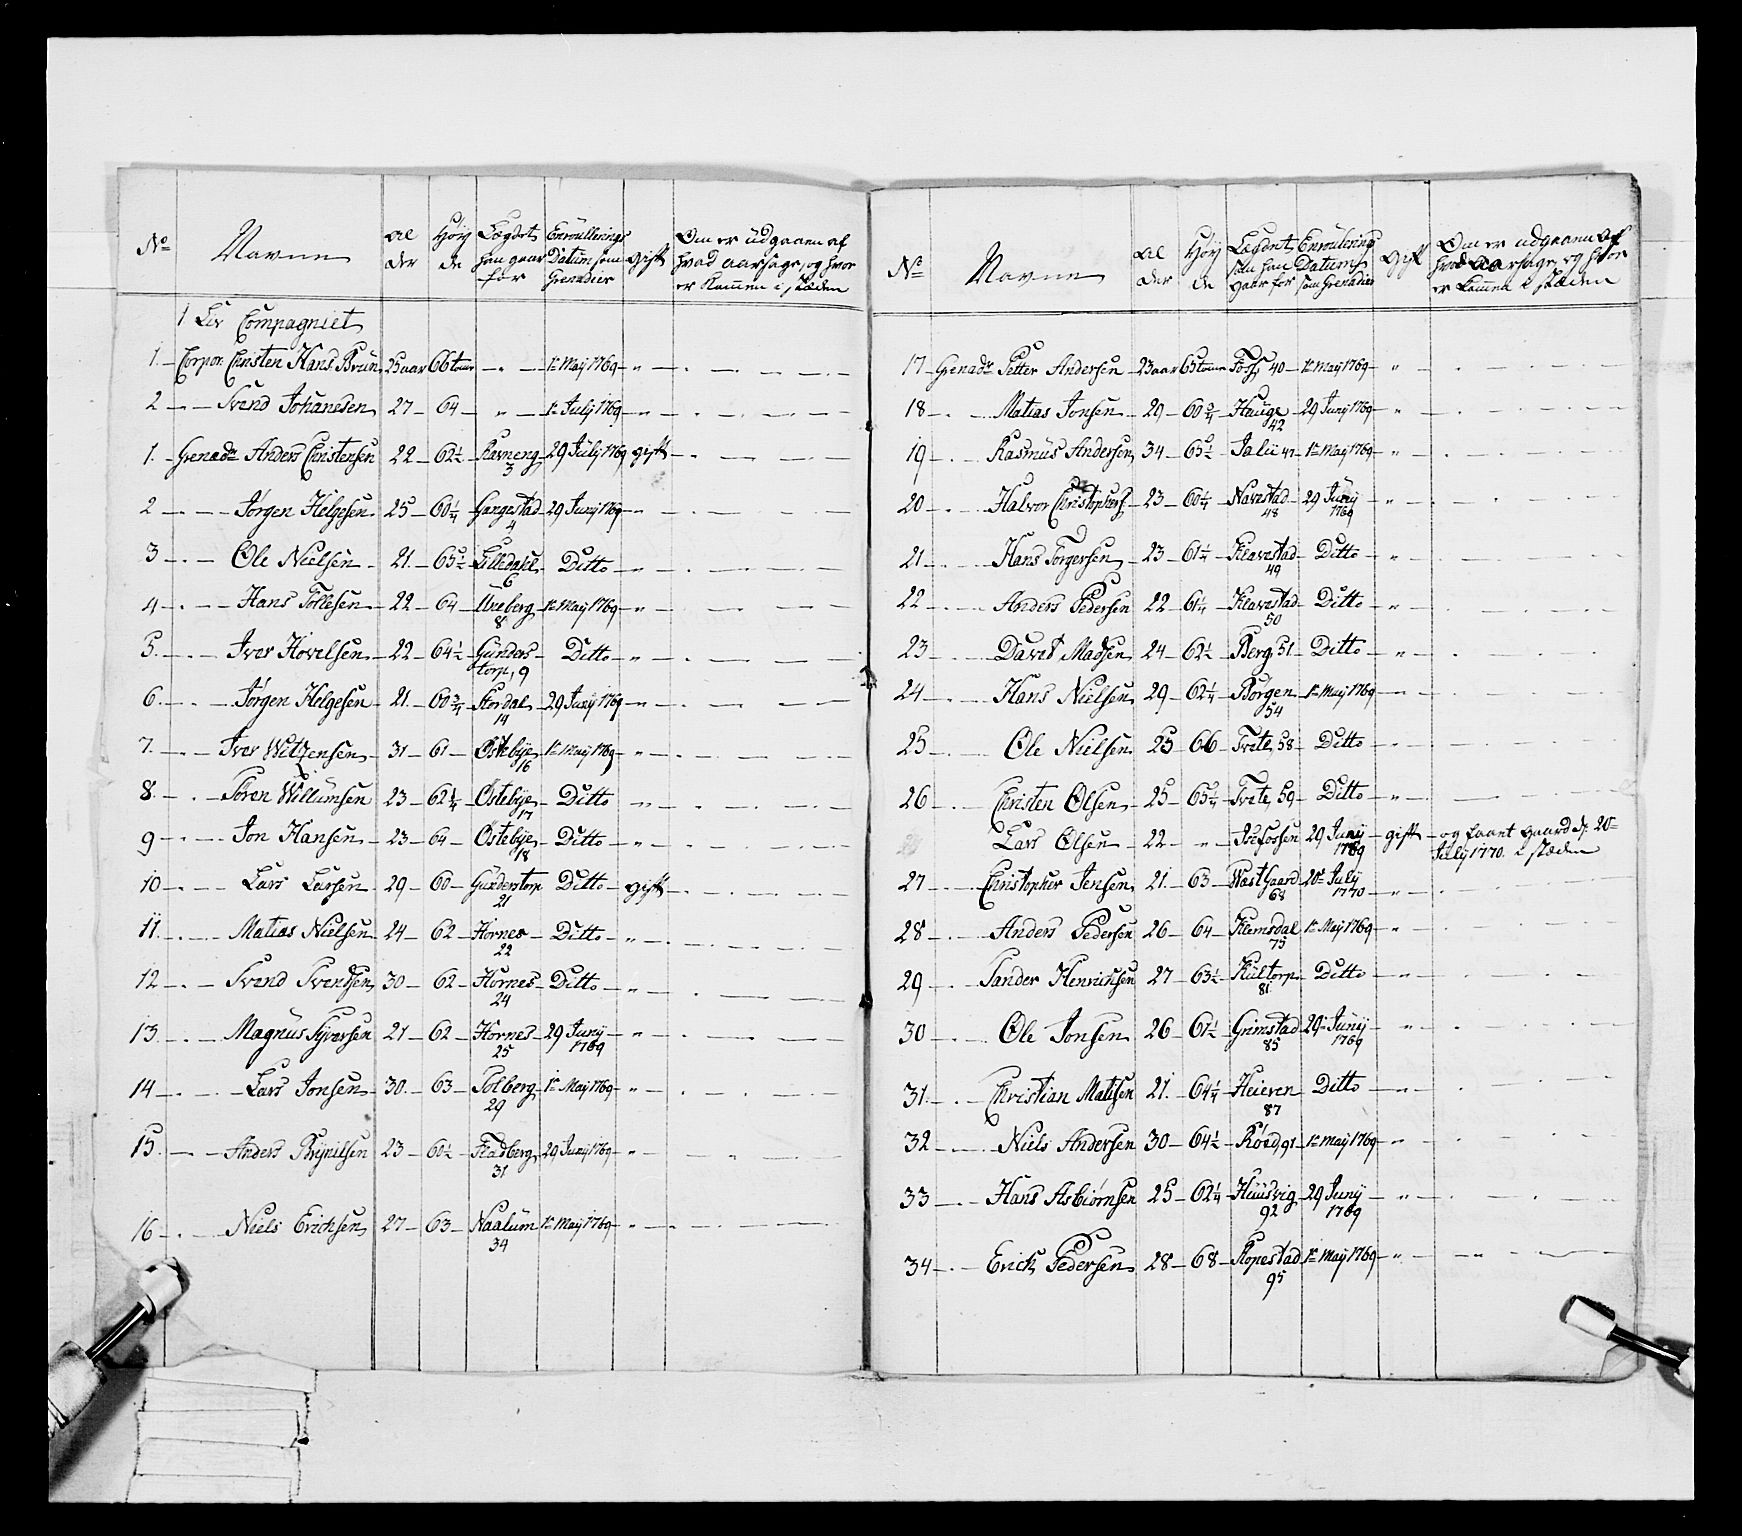 No Navne Al der Høy de Lægdet han gaar for Enroullerings Datum som Grenadier gift Om er udgaaen af hvad aarsage, og hvor er kommen i stæden
1. Liv Compagniet
1. Corpor. Christen Hans Bruun 25 aar 66 tom̅ " 1te May 1769 "
2 Svend Johanesen 27 64 " 1te July 1769 "
1. Grenadr Anders Christensen 22 62½ Ravneng 3 29 July 1769 gift
2 Jørgen Helgesen 25 60¼ Gangestad 4 29 Juny 1769 "
3 Ole Nielsen 21 63½ Lilledahl 6 Ditto "
4 Hans Tollesen 22 64 Uxeberg 8 1te May 1769 "
5. Iver Hovelsen 22 64½ Gunders torp, 9 Ditto "
6. Jørgen Helgesen 21. 60¾ Stordal 14 29 Juny 1769 "
7. Iver Witzensen 31 61 Østebye 16 1te May 1769 "
8. Søren Willumsen 23 62¼ Østebye 17 Ditto "
9 Jon Hansen 23 64 Østebye 18 Ditto "
10 Lars Larsen 29 60 Gunderstorp 21 Ditto gift
11. Matias Nielsen 24 62 Hornes 22 Ditto "
12 Svend Svendsen 30 62 Hornes 24 Ditto "
13 Magnus Syversen 21 62 Hornes 25 29 Juny 1769 "
14 Lars Jonsen 30 63 Solberg 29 1te May 1769 "
15. Anders Brynilsen 23 60½ Fladberg 31 29 Juny 1769 "
16 Niels Ericksen 27 63 Naalum 34 1te May 1769 "
No Navne Al der Høy de Lægdet som han gaar for Enroulering Datum som Grenadier gift Om er udgaaen af hvad aarsage, og hvor er kommen i stæden
17 Grenadr Petter Andersen 23 aar 63 tom̅ Foss 40 1te May 1769 "
18 Matias Jonsen 29 60¾ Hauge 42 29 Juny 1769 "
19 Rasmus Andersen 34 63½ Jalu 47 1te May 1769 "
20 Halvor Christophers. 23 60¼ Navestad 48 29 Juny 1769 "
21 Hans Torgersen 23 61¼ Klavestad 49 Ditto "
22 Anders Pedersen 22 61¼ Klavestad 50 Ditto "
23 David Madsen 24 62½ Berg 51 Ditto "
24 Hans Nielsen 29 62¼ Borgen 54 1te May 1769 "
25 Ole Nielsen 25 66 Tvete, 58 Ditto "
26 Christen Olsen 25 63¼ Tvete, 59 Ditto "
Lars Olsen 22 " 29 Juny 1769 gift og faaet gaard d. 20de July 1770. i stæden
27 Christopher Jensen 21. 63 WæstGaard 68 20de July 1770 "
28 Anders Pedersen 26 64 Klemsdal 75 1te May 1769 "
29 Sander Henrichsen 27 63½ Kultorp 81. Ditto "
30 Ole Jonsen 26 61½ Grimstad 85 29de Juny 1769 "
31. Christian Matisen 21. 64¼ Heieren 87 Ditto "
32 Niels Andersen 30 64½ Røed, 91 1te May 1769 "
33 Hans Asbiørnsen 25 62¼ Huusvig 92 29 Juny 1769 "
34 Erick Pedersen 28 68 Kopestad 95 1te May 1769 "